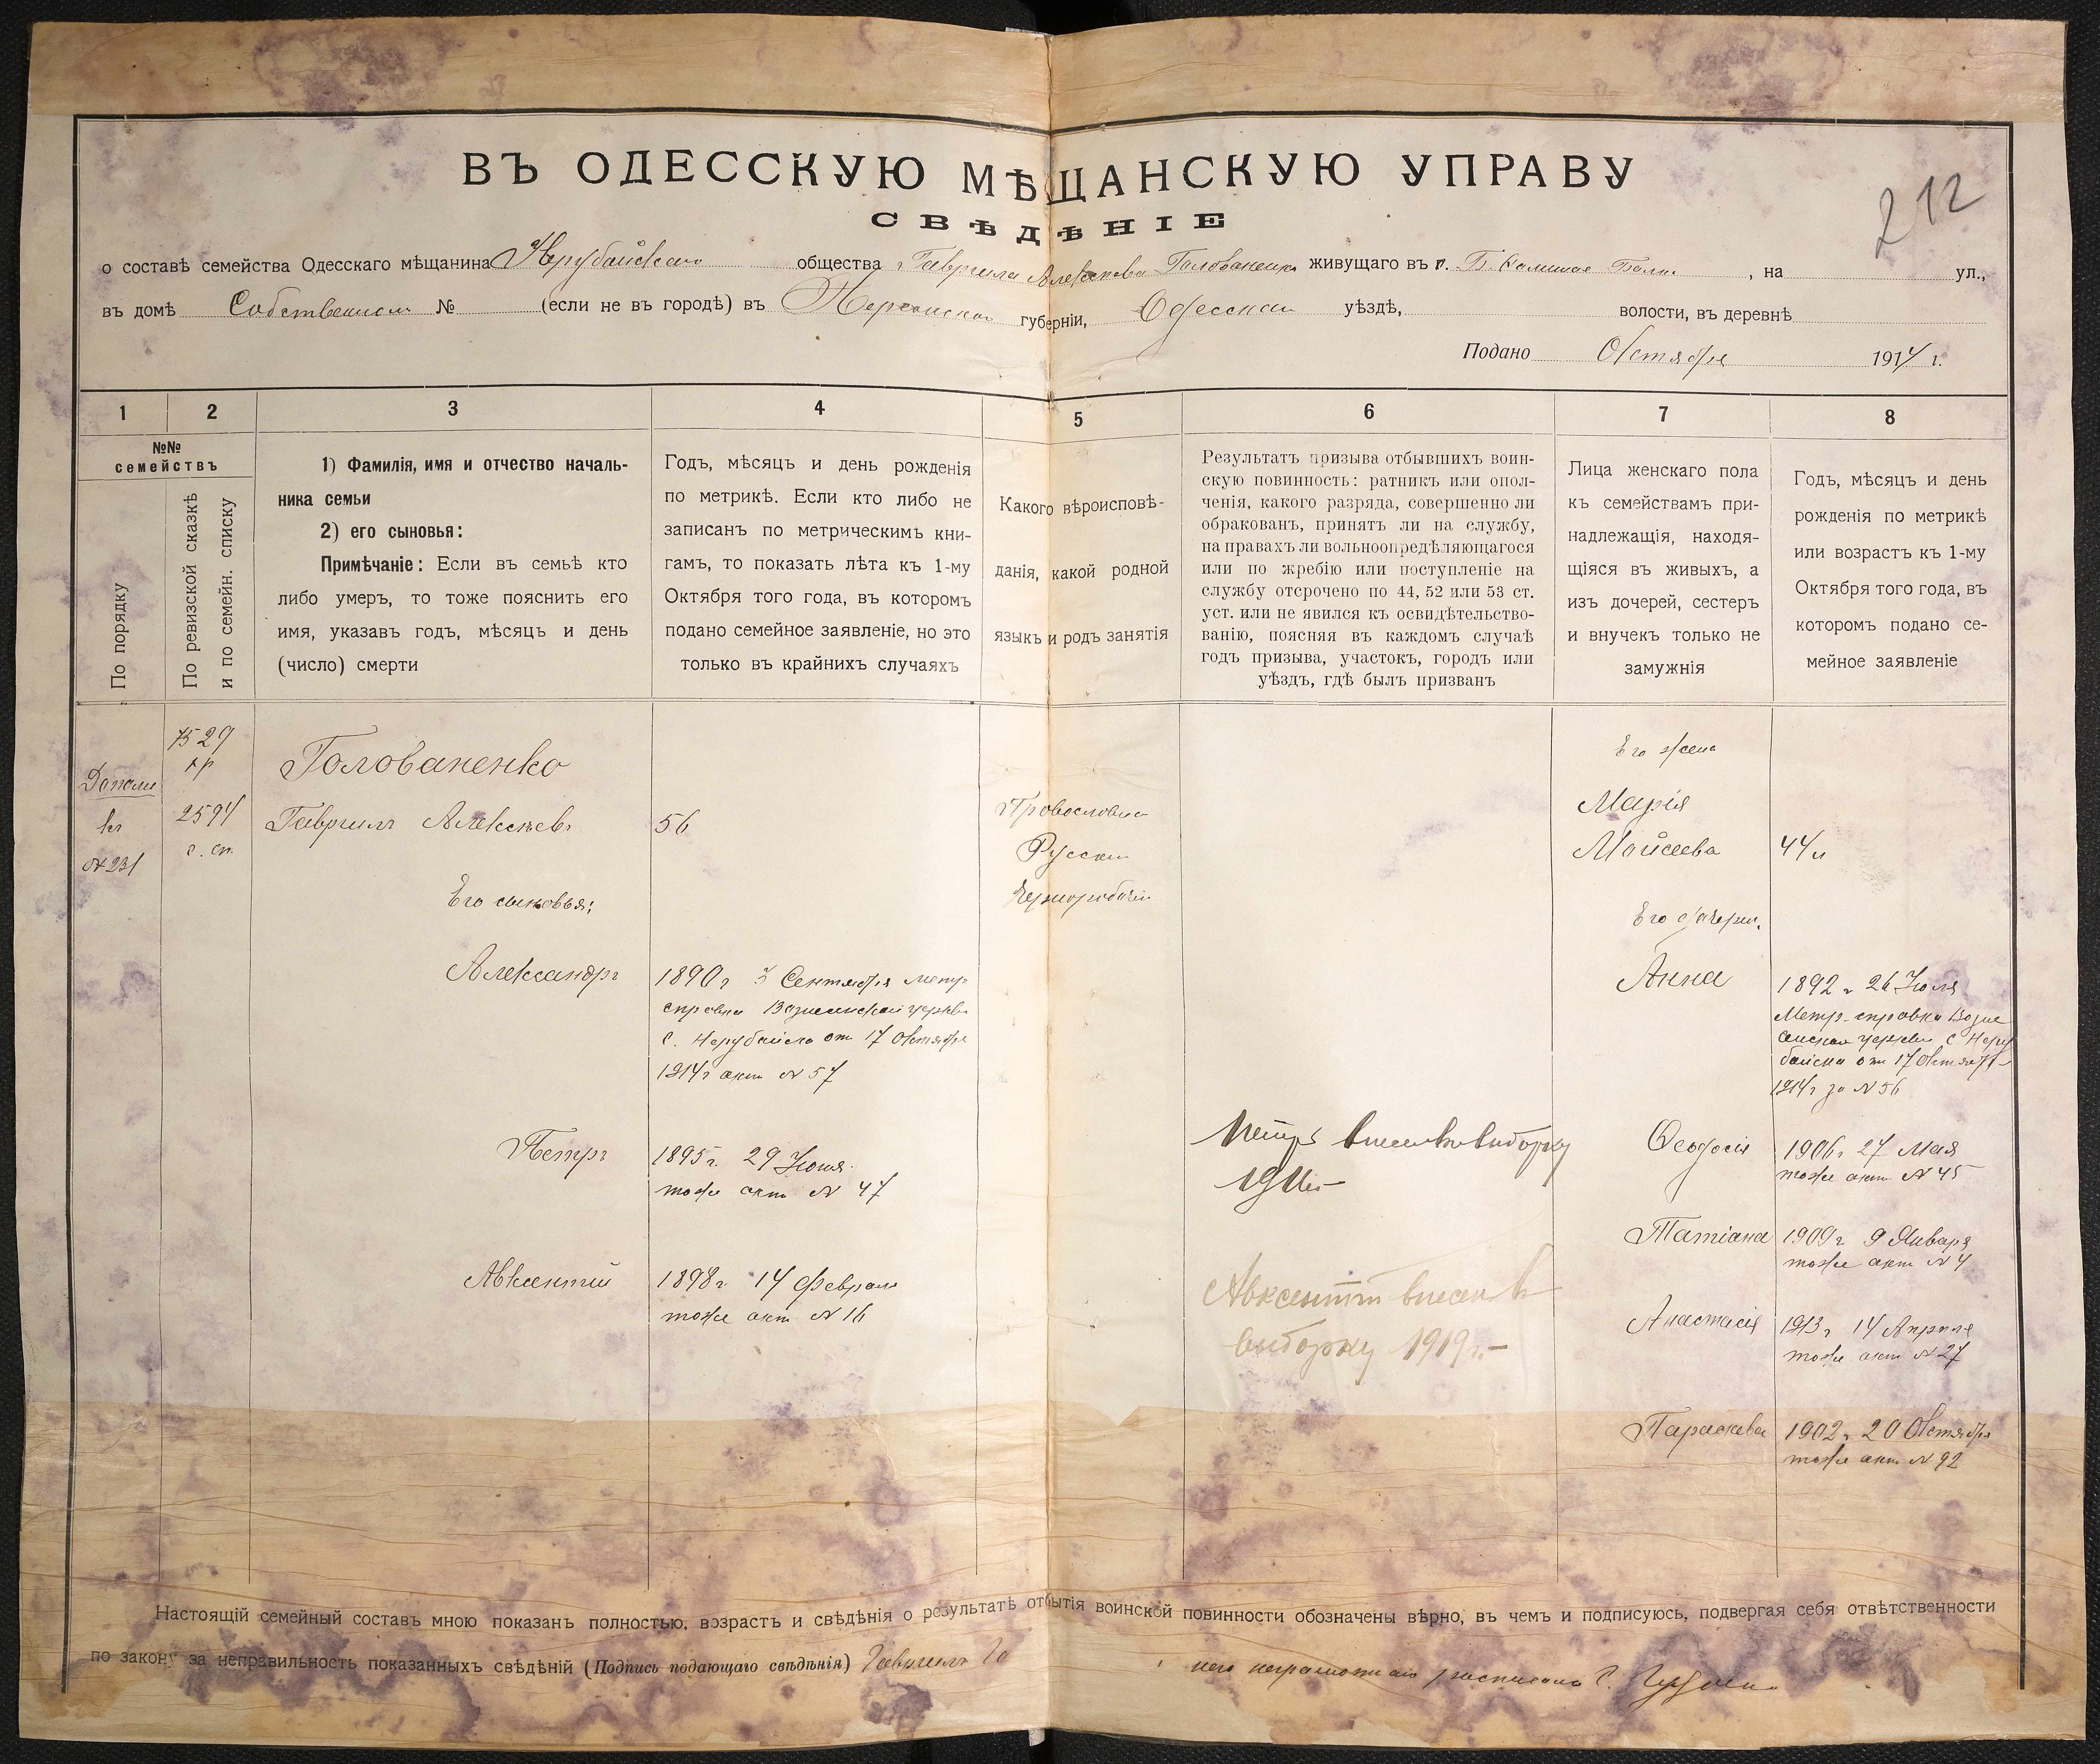 ВЪ ОДЕССКУЮ МѢЩАНСКУЮ УПРАВУ
212
СВѢДѢНІЕ
о составѣ семейства Одесскаго мѣщанина Нерубайскаго общества Гаврила Алексѣева Голованенко живущаго въ с. Б. Балки, на ул.,
въ домѣ Собственном № (если не въ городѣ) въ Херсонской губерніи, Одесском уѣздѣ, волости, въ деревнѣ
Подано Октября 1914 г.
1 2 3 4 5 6 7 8
№№
семействъ
По порядку
По ревизской сказкѣ
и по семейн. списку
1) Фамилія, имя и отчество началь-
ника семьи
2) его сыновья:
Примѣчаніе: Если въ семьѣ кто
либо умеръ, то тоже пояснить его
имя, указавъ годъ, мѣсяцъ и день
(число) смерти
Годъ, мѣсяцъ и день рожденія
по метрикѣ. Если кто либо не
записанъ по метрическимъ кни-
гамъ, то показать лѣта къ 1-му
Октября того года, въ которомъ
подано семейное заявленіе, но это
только въ крайнихъ случаяхъ
Какого вѣроисповѣ-
данія, какой родной
языкъ и родъ занятія
Результатъ призыва отбывшихъ воин-
скую повинность: ратникъ или опол-
ченія, какого разряда, совершенно ли
обракованъ, принятъ ли на службу,
на правахъ ли вольноопредѣляющагося
или по жребію или поступленіе на
службу отсрочено по 44, 52 или 53 ст.
уст. или не явился къ освидѣтельство-
ванію, поясняя въ каждомъ случаѣ
годъ призыва, участокъ, городъ или
уѣздъ, гдѣ былъ призванъ
Лица женскаго пола
къ семействамъ при-
надлежащія, находя-
щіяся въ живыхъ, а
изъ дочерей, сестеръ
и внучекъ только не
замужнія
Годъ, мѣсяцъ и день
рожденія по метрикѣ
или возрастъ къ 1-му
Октября того года, въ
которомъ подано се-
мейное заявленіе
Дополн
къ
№231
7529
кр
2594
с. сп.
Голованенко
Гаврилъ Алексѣевъ 56
Его сыновья:
Александръ
1890 г 3 Сентября метр
справка Вознесенской церкви
с. Нерубайска от 17 Октября
1914 г акт № 57
Петръ
1895 г. 29 Июня
тоже акт № 47
Авксентій
1898 г 14 Февраля
тоже акт № 16
Православн
Русскій
Чернорабочій
Петръ внесен в выборку
191
Авксентій внесен в
выборку 1919 г.-
Его жена
Марія
Мойсеева 44 л
Его дочери.
Анна
1892 г 26 Июля
Метр. справка Возне
сенской церкви с Неру
байска от 17 Октября
1914 г за № 56
Ѳеодосія
1906 г 27 Мая
тоже акт № 45
Татіана
1909 г. 9 Января
тоже акт № 4
Анастасія
1913 г 14 Апреля
тоже акт № 27
Параскева
1902 г 20 Октября
тоже акт № 92
Настоящій семейный составъ мною показанъ полностью, возрастъ и свѣдѣнія о результатѣ отбытія воинской повинности обозначены вѣрно, въ чемъ и подписуюсь, подвергая себя отвѣтственности
по закону за неправильность показанныхъ свѣдѣній (Подпись подающаго свѣдѣнія) Гаврилъ Го него неграмотнаго росписался С.